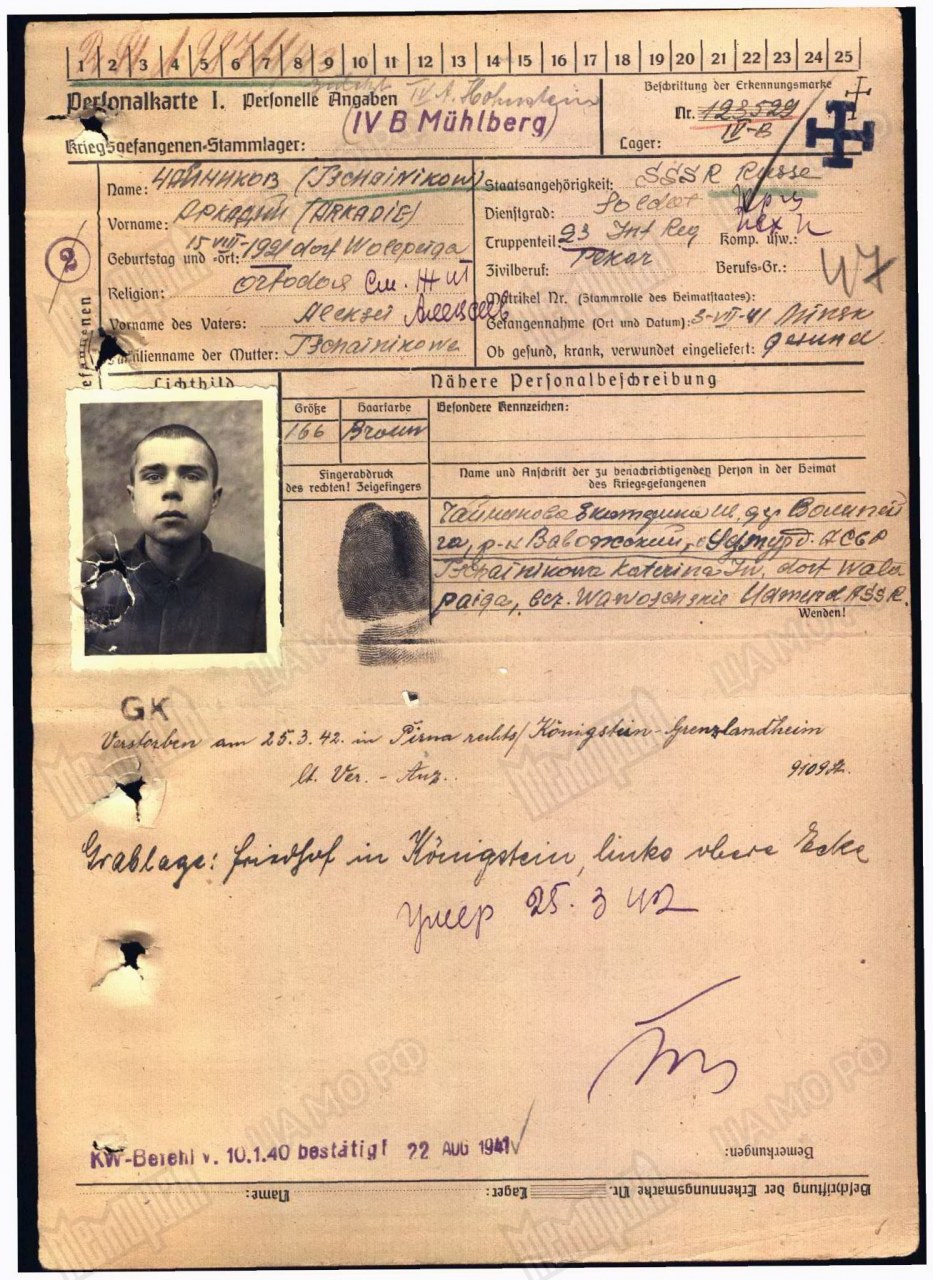 1 2 3 4 5 6 7 8 9 10 11 12 13 14 15 16 17 18 19 20 21 22 23 24 25
Personalkarte I. Personelle Angaben IV A. Hohnstein
(IV B Mühlberg)
Kriegsgefangenen-Stammlager:
Beschriftung der Erkennungsmarke
Nr. 123529
Lager: IV-B
Name: Чайников (Tschainikow)
Vorname: Аркадий (ARKADIE)
Geburtstag und -ort: 15 VIII-1921 dorf
Religion: ortodox
Vorname des Vaters: Алексей
Familienname der Mutter: Tschainikowa
Staatsangehörigkeit: SSSR Russe
Dienstgrad: Soldat
Truppenteil: 23 Inf Reg Komp. usw.:
Zivilberuf: Пекарь Berufs-Gr.:
Matrikel Nr. (Stammrolle des Heimatstaates):
Gefangennahme (Ort und Datum): 3-VII-41 Minsk
Ob gesund, krank, verwundet eingeliefert: gesund
2
W7
Lichtbild
Nähere Personalbeschreibung
Größe
166
Haarfarbe
Braun
Besondere Kennzeichen:
Fingerabdruck
des rechten! Zeigefingers
Name und Anschrift der zu benachrichtigenden Person in der Heimat
des Kriegsgefangenen
га, р-н Вавожский, Удмурд. АССР
Tschainikowa Katerina Iw. dorf Wale
paiga, bez. Udmurd ASSR.
Wenden!
GK
Verstorben am 25.3.42. in Pirna rechts/Königstein-Grenzlandheim
lt. Ver.-Anz.
Grablage: Friedhof in Königstein, links obere Ecke
умер 25. 3 42
KW-Befehl v. 10.1.40 bestätigt 22 AUG 1941
Bemerkungen:
Beschriftung der Erkennungsmarke Nr. Lager: Name:
Мемориал
ЦАМО РФ